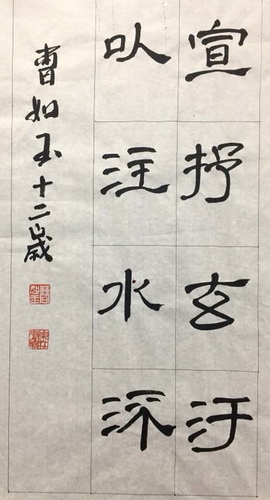 宣抒玄汙
以注水流
曹如玉十二歲